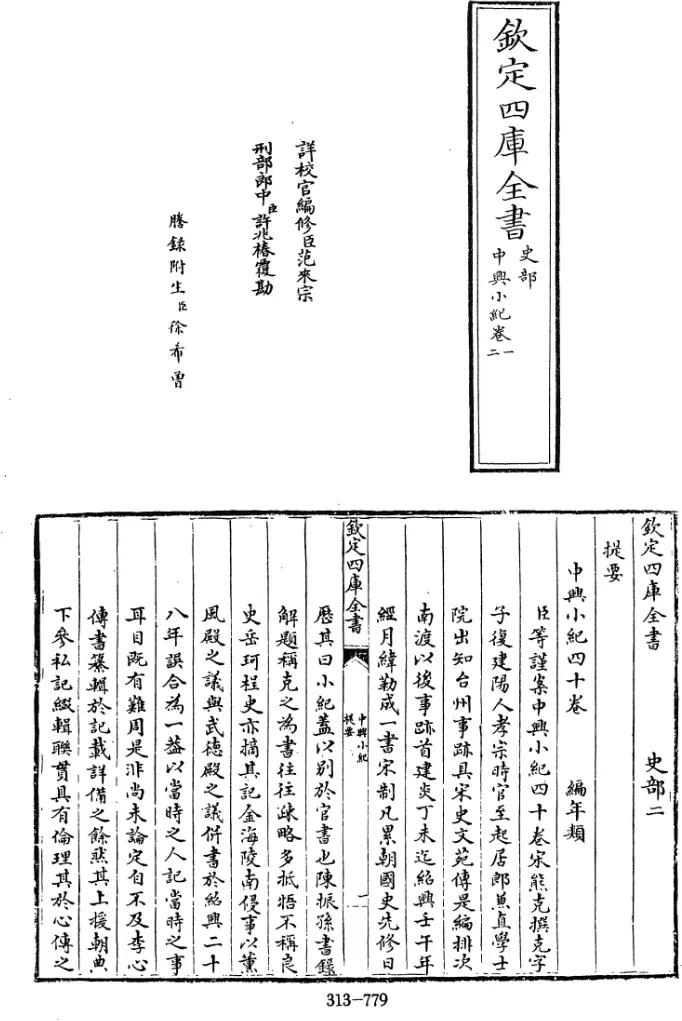 欽定四庫全書
史部
中興小紀卷一二
詳校官編修臣范來宗
刑部郎中臣許兆椿覆勘
謄錄附生臣徐希曾
欽定四庫全書 史部二
提要
中興小紀四十卷 編年類
臣等謹案中興小紀四十卷宋熊克撰克字
子復建陽人孝宗時官至起居郎兼直學士
院出知台州事跡具宋史文苑傳是編排次
南渡以後事跡首建炎丁未迄紹興壬午年
經月緯勒成一書宋制凡累朝國史先修日
欽定四庫全書
中興小紀
提要
一
歷其曰小紀蓋以別於官書也陳振孫書錄
解題稱克之為書往往疎略多抵牾不稱良
史岳珂桯史亦摘其記金海陵南侵事以薰
風殿之議與武德殿之議併書於紹興二十
八年誤合為一蓋以當時之人記當時之事
耳目既有難周是非尚未論定自不及李心
傳書纂輯於記載詳備之餘然其上援朝典
下參私記綴輯聯貫具有倫理其於心傳之
313-779